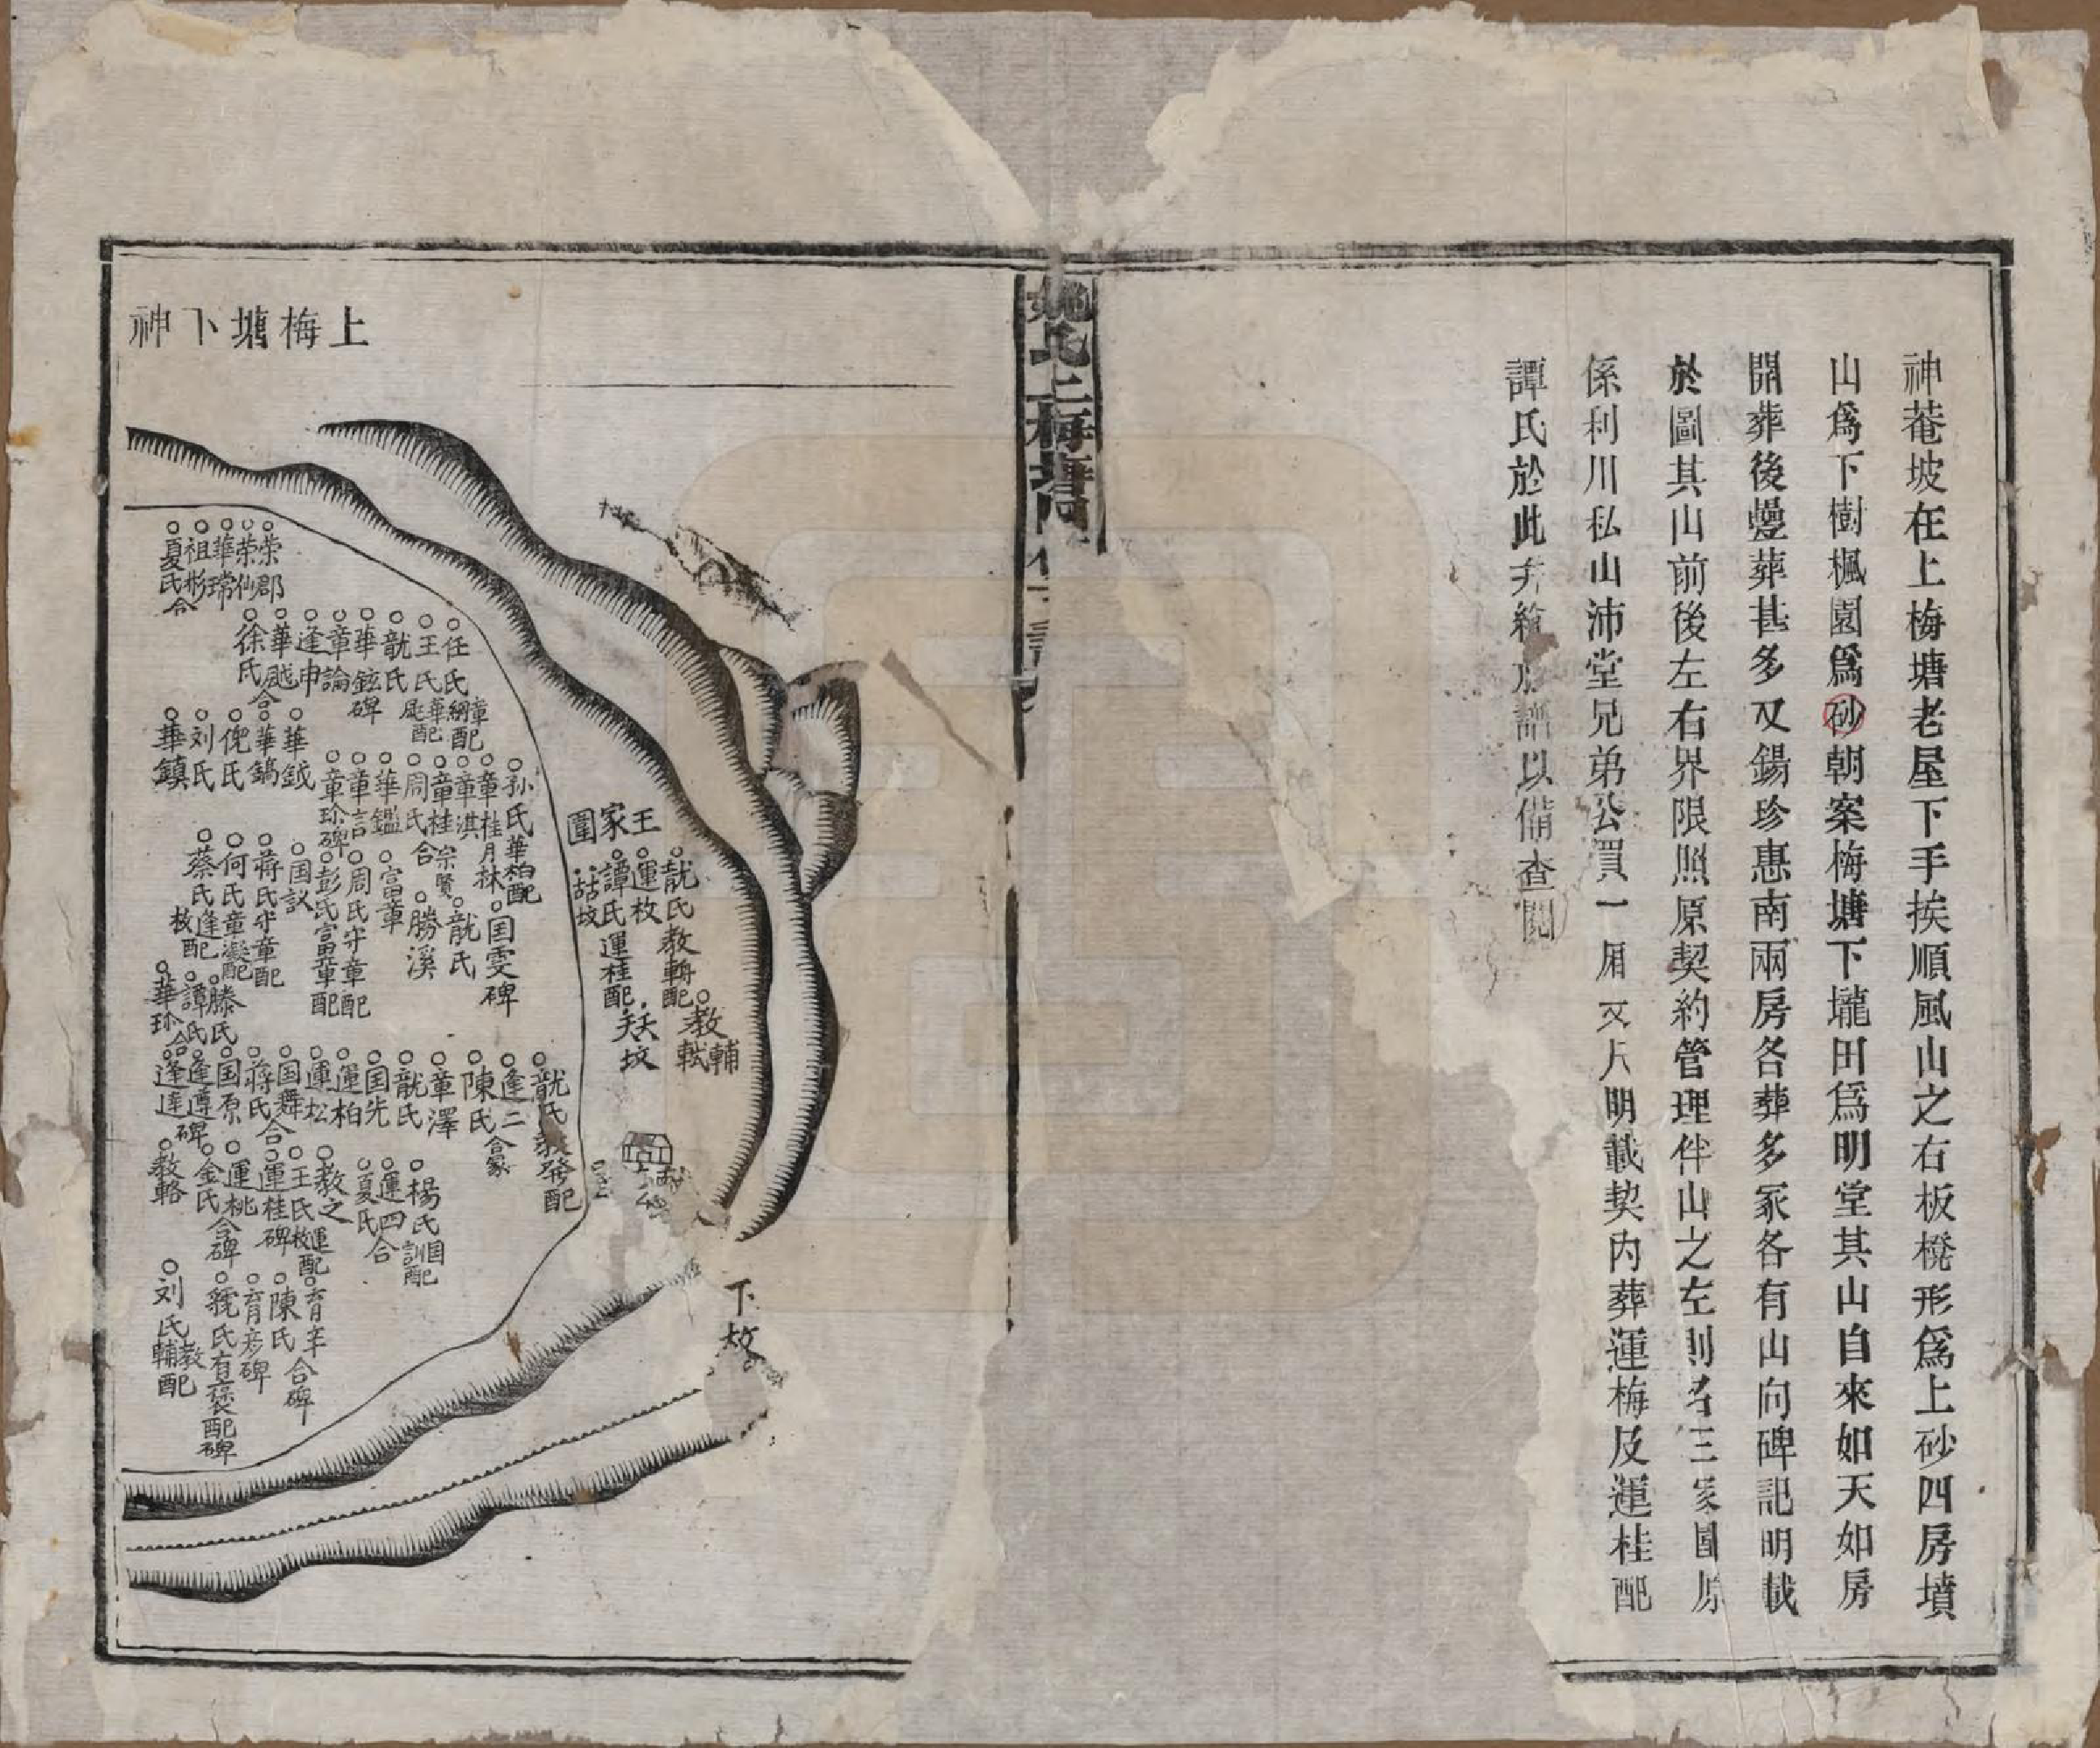 神菴坡在上梅塘老屋下手挨順風山之右板櫈形爲上砂四房墳
山爲下樹楓園爲砂朝案梅塘下壠田爲明堂其山自來如天如房
開葬後叠葬甚多又錫珍惠南兩房各葬多冢各有山向碑記明載
於圖其山前後左右界限照原契約管理伴山之左則名王家圍原
係利川私山沛堂兄弟公買一厢丈尺明載契內葬運梅及運桂配
譚氏於此弁繪於譜以備查閱
姚氏上梅塘
上梅塘下神
王家圍
龍氏教輈配
運枚
譚氏運桂配
教輔
教軾
下故
榮郡
榮仙
華瑺
祖彬
夏氏合
任氏章綱配
王氏華颰配
龍氏
華鉉碑
章論
逢申
華颰合
徐氏
華鉞
華鎬
倪氏
刘氏
華鎮
孙氏華柏配
章桂月林
章淇
章桂宗賢
周氏合
華鑑
章言
章珎碑
国雯碑
龍氏
勝溪
富章
周氏守章配
彭氏富章配
国议
蔣氏守章配
何氏章凝配
蔡氏逢枚配
滕氏
譚氏
華珎合
龍氏教發配
逢二合冢
陳氏
章澤
龍氏
国先
運柏
運松
国舞合
蔣氏
国原
逢遵碑
逢達
楊氏国訓配
運四合
夏氏
教之
王氏運枚配
運桂碑
運桃合碑
金氏
教輅
育羊合碑
陳氏
育彦碑
龍氏有褒配碑
刘氏教輔配